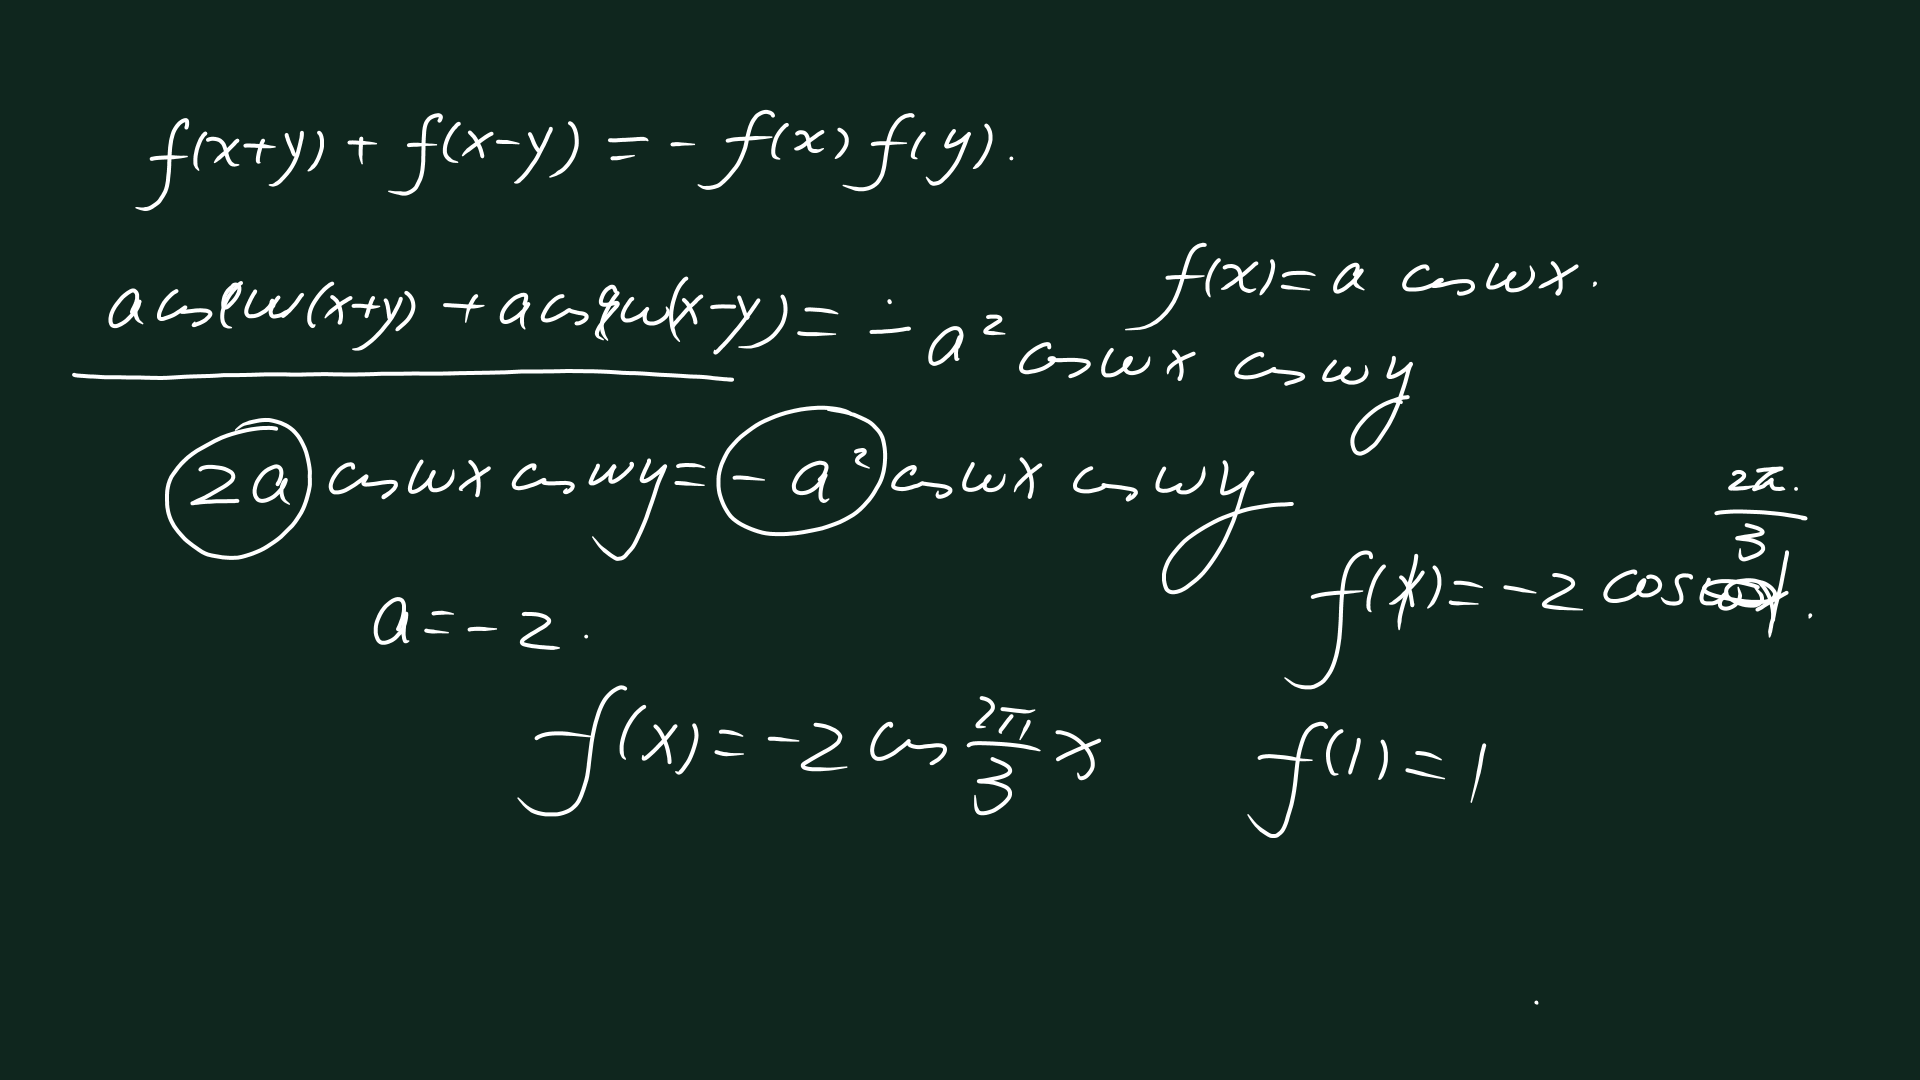 f(x+y) + f(x-y) = - f(x) f(y).
f(x) = a cos wx.
a cos w(x+y) + a cos w(x-y) = - a² cos wx cos wy
2a cos wx cos wy = -a² cos wx cos wy
a = -2.
f(1) = -2 cos 2π/3.
f(x) = -2 cos 2π/3 x
f(1) = 1